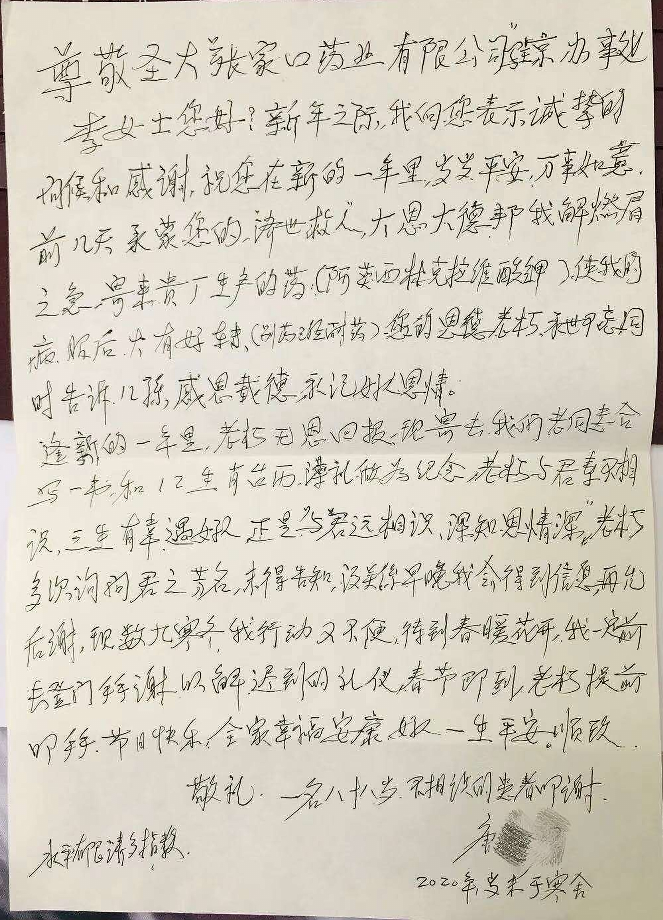 尊敬圣大张家口药业有限公司"驻京办事处
李女士您好?新年之际,我向您表示诚挚的
问候和感谢,祝您在新的一年里,岁岁平安,万事如意.
前几天承蒙您的,济世救人,大恩大德帮我解燃眉
之急,寄来贵厂生产的药.(阿莫西林克拉维酸钾).使我的
病.服后.大有好转.您的恩德老朽.永世不忘,同
时告诉儿孙,感恩戴德,永记好人恩情。
逢新的一年里,老朽无恩回报,现寄去,我们老同志合
写一书,和12生肖台历.薄礼做为纪念,老朽与君素不相
识,三生有幸,遇好人,正是"与君远相识,深知恩情深",老朽
多次询问君之芳名,未得告知,没关系早晚我会得到信息,再先
后谢,现数九寒冬,我行动又不便,待到春暖花开,我一定前
去登门拜谢以解迟到的礼仪,春节即到,老朽提前
叩拜.节日快乐,全家幸福安康,好人一生平安。顺致.
敬礼.一名八十八岁.不相识的患者叩谢.
水平有限请多指教.
2020年岁末于寒舍